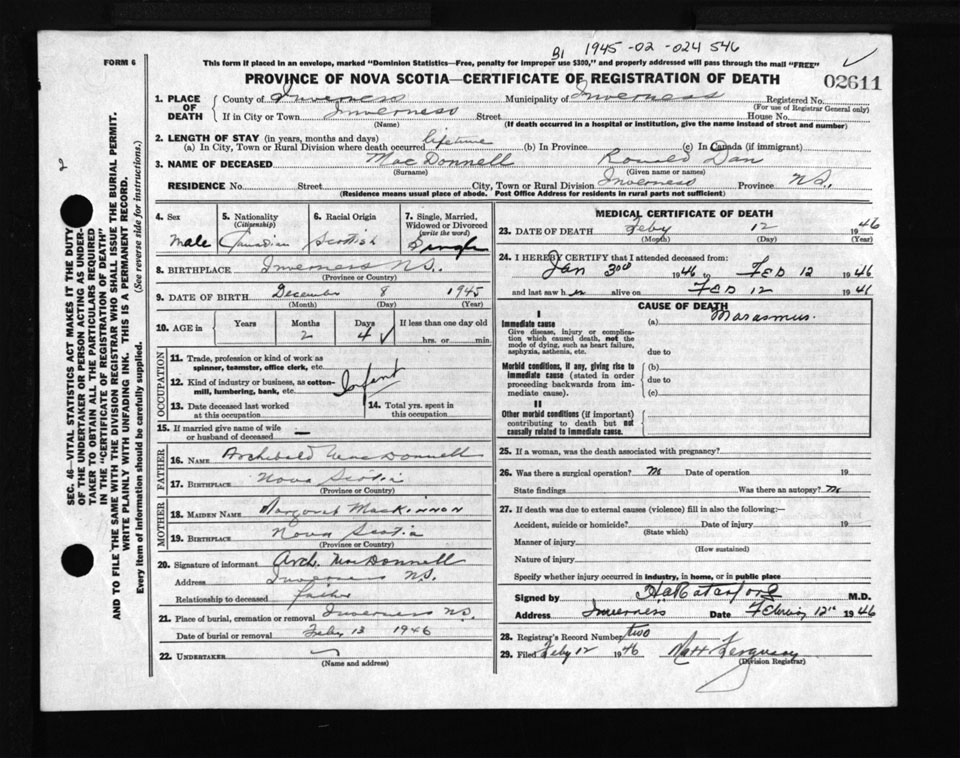 B1 1945-02-024546
FORM 6
This form if placed in an envelope, marked "Dominion Statistics—Free, penalty for improper use $300," and properly addressed will pass through the mail "FREE"
PROVINCE OF NOVA SCOTIA—CERTIFICATE OF REGISTRATION OF DEATH
02611
1. PLACE OF DEATH
County of Inverness Municipality of Inverness Registered No.
(For use of Registrar General only)
If in City or Town Inverness Street House No.
(Name) (If death occurred in a hospital or institution, give the name instead of street and number)
2. LENGTH OF STAY (in years, months and days)
(a) In City, Town or Rural Division where death occurred lifetime (b) In Province (c) In Canada (if immigrant)
3. NAME OF DECEASED MacDonnell Ronald Dan
(Surname) (Given name or names)
RESIDENCE No. Street City, Town or Rural Division Inverness Province N.S.
(Residence means usual place of abode. Post Office Address for residents in rural parts not sufficient)
4. Sex
male
5. Nationality
(Citizenship)
Canadian
6. Racial Origin
Scottish
7. Single, Married, Widowed or Divorced
(write the word)
Single
8. BIRTHPLACE Inverness N.S.
(Province or Country)
9. DATE OF BIRTH December 8 1945
(Month) (Day) (Year)
10. AGE in Years Months Days If less than one day old
2 4 hrs. or min.
OCCUPATION
11. Trade, profession or kind of work as spinner, teamster, office clerk, etc.
12. Kind of industry or business, as cotton-mill, lumbering, bank, etc.
Infant
13. Date deceased last worked at this occupation
14. Total yrs. spent in this occupation
15. If married give name of wife or husband of deceased —
FATHER
16. NAME Archibald MacDonnell
17. BIRTHPLACE Nova Scotia
(Province or Country)
MOTHER
18. MAIDEN NAME Margaret MacKinnon
19. BIRTHPLACE Nova Scotia
(Province or Country)
20. Signature of informant Arch. MacDonnell
Address Inverness N.S.
Relationship to deceased father
21. Place of burial, cremation or removal Inverness N.S.
Date of burial or removal Feby 13 1946
22. UNDERTAKER
(Name and address)
MEDICAL CERTIFICATE OF DEATH
23. DATE OF DEATH Feby 12 1946
(Month) (Day) (Year)
24. I HEREBY CERTIFY that I attended deceased from:
Jan 30th 1946 to Feb 12 1946
and last saw h alive on Feb 12 1946
CAUSE OF DEATH
I
Immediate cause (a) Marasmus.
Give disease, injury or complication which caused death, not the mode of dying, such as heart failure, asphyxia, asthenia, etc. due to
Morbid conditions, if any, giving rise to immediate cause (stated in order proceeding backwards from immediate cause). (b)
due to
(c)
II
Other morbid conditions (if important) contributing to death but not causally related to immediate cause.
25. If a woman, was the death associated with pregnancy?
26. Was there a surgical operation? no Date of operation 19
State findings Was there an autopsy? no
27. If death was due to external causes (violence) fill in also the following:—
Accident, suicide or homicide? Date of injury 19
(State which)
Manner of injury
(How sustained)
Nature of injury
Specify whether injury occurred in industry, in home, or in public place
Signed by M.D.
Address Inverness Date 12th 1946
28. Registrar's Record Number two
29. Filed Feby 12 1946 Ferguson
(Division Registrar)
SEC. 46—VITAL STATISTICS ACT MAKES IT THE DUTY
OF THE UNDERTAKER OR PERSON ACTING AS UNDER-
TAKER TO OBTAIN ALL THE PARTICULARS REQUIRED
IN THE "CERTIFICATE OF REGISTRATION OF DEATH"
AND TO FILE THE SAME WITH THE DIVISION REGISTRAR WHO SHALL ISSUE THE BURIAL PERMIT.
WRITE PLAINLY WITH UNFADING INK. THIS IS A PERMANENT RECORD.
Every item of information should be carefully supplied. (See reverse side for instructions.)
2